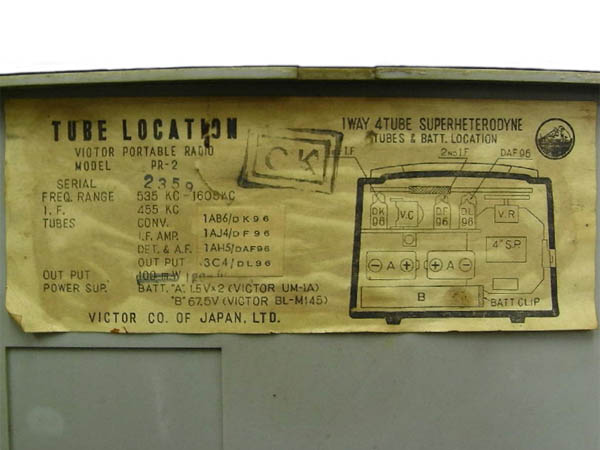 TUBE LOCATION
VICTOR PORTABLE RADIO
MODEL PR-2
SERIAL 2359
FREQ. RANGE 535 KC - 1605 KC
I. F. 455 KC
TUBES CONV. 1AB6/DK96
I.F. AMP. 1AJ4/DF96
DET. & A.F. 1AH5/DAF96
OUT PUT 3C4/DL96
OUT PUT 100 mW
POWER SUP. BATT. "A", 1.5V×2 (VICTOR UM-1A)
"B" 67.5V (VICTOR BL-M145)
VICTOR CO. OF JAPAN, LTD.
OK
1 WAY 4 TUBE SUPERHETERODYNE
TUBES & BATT. LOCATION
I.F. 2ND I.F. DAF96
DK 96
V.C
DF 96
DL 96
V.R
4" S.P.
⊖ A +
+ A ⊖
B
BATT CLIP